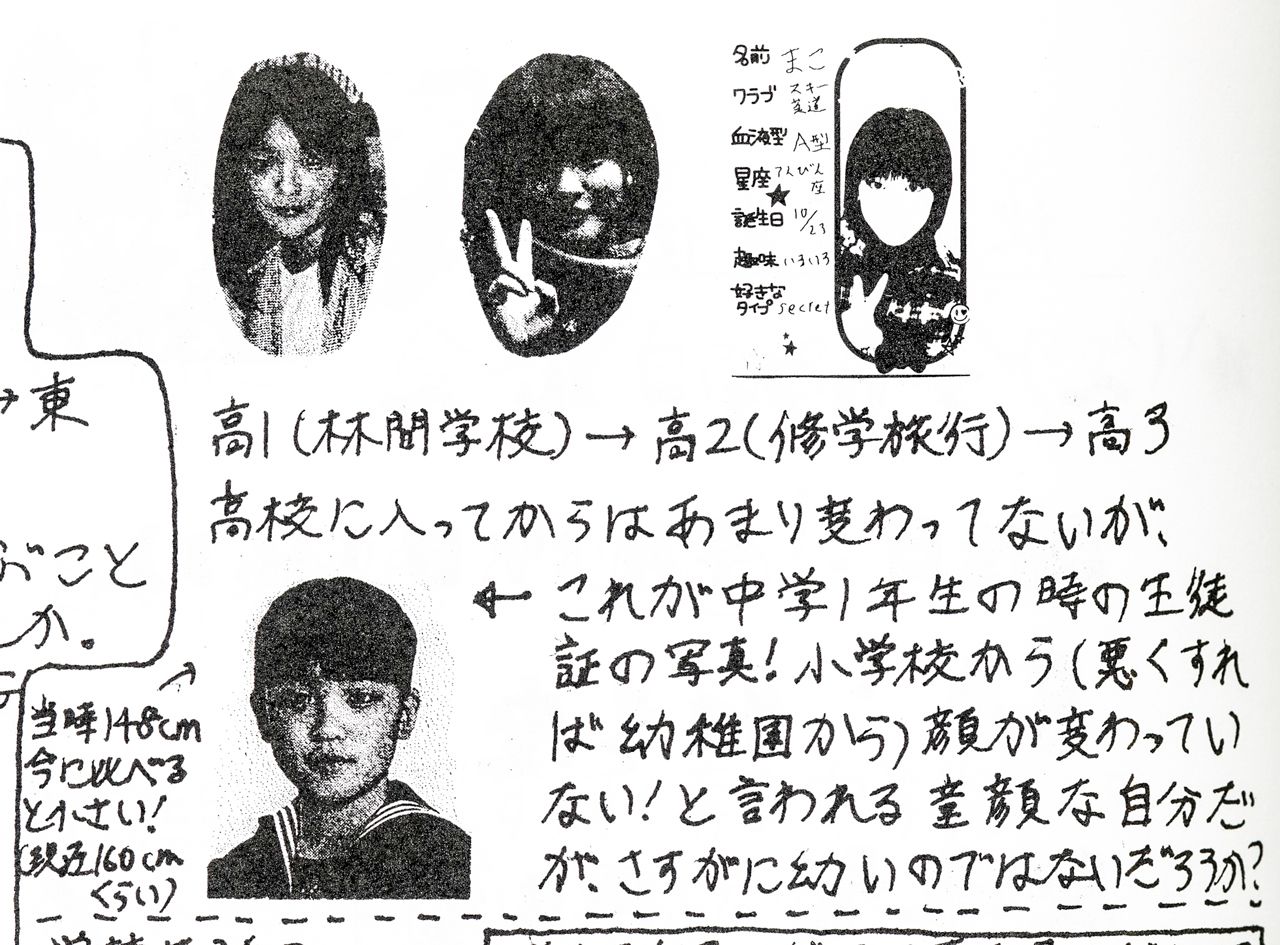 名前 まこ
クラブ スキー
茶道
血液型 A型
星座 てんびん
座
誕生日 10/23
趣味 いろいろ
好きな
タイプ secret
→東
高1(林間学校)→高2(修学旅行)→高3
高校に入ってからはあまり変わってないが、
ぶこと
か。
←これが中学1年生の時の生徒
証の写真!小学校から(悪くすれ
ば幼稚園から)顔が変わってい
ない!と言われる童顔な自分だ
が、さすがに幼いのではないだろうか?
当時148cm
今に比べる
と小さい!
(現在160cm
くらい)